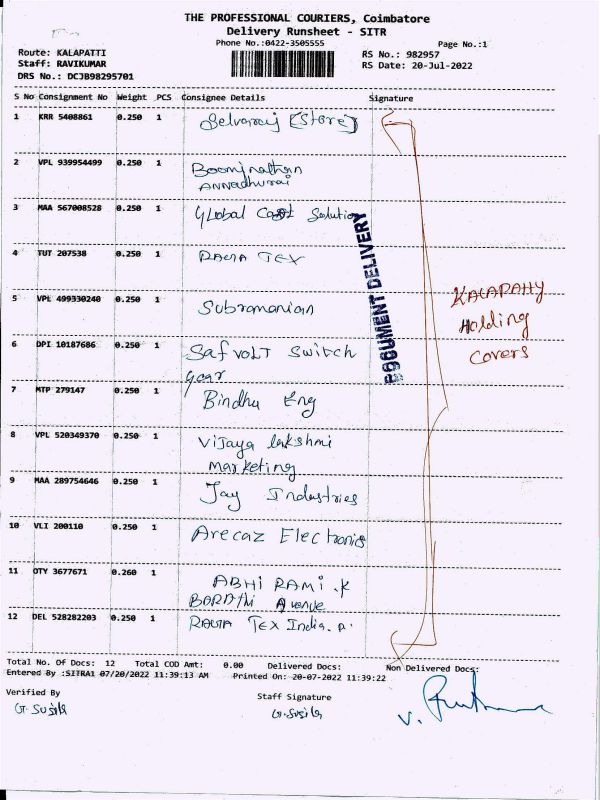 THE PROFESSIONAL COURIERS, Coimbatore
Delivery Runsheet - SITR
Phone No.:0422-3505555
Page No.:1
Route: KALAPATTI
Staff: RAVIKUMAR
DRS No.: DCJB98295701
RS No.: 982957
RS Date: 20-Jul-2022
S No Consignment No Weight PCS Consignee Details Signature
1 KRR 5408861 0.250 1 Selvaraj (Store)
2 VPL 939954499 0.250 1 Boominathan
Annadhurai
3 MAA 567008528 0.250 1 Global Cost Solution
4 TUT 207538 0.250 1 RALIA TEX
5 VPL 499330240 0.250 1 Subramanian
6 DPI 10187686 0.250 1 Safvolt Switch
gear
7 MTP 279147 0.250 1 Bindhu Eng
8 VPL 520349370 0.250 1 Vijaya lakshmi
Marketing
9 MAA 289754646 0.250 1 Jay Industries
10 VLI 200110 0.250 1 Arecaz Electronis
11 OTY 3677671 0.260 1 ABHI RAMI .K
BARATHI Avenue
12 DEL 528282203 0.250 1 RALIA TEX India. P.
DOCUMENT DELIVERY
KALAPATTY
Holding
Covers
Total No. Of Docs: 12 Total COD Amt: 0.00 Delivered Docs: Non Delivered Docs:
Entered By :SITRA1 07/20/2022 11:39:13 AM Printed On: 20-07-2022 11:39:22
Verified By
G. Susila
Staff Signature
G. Susila
V.